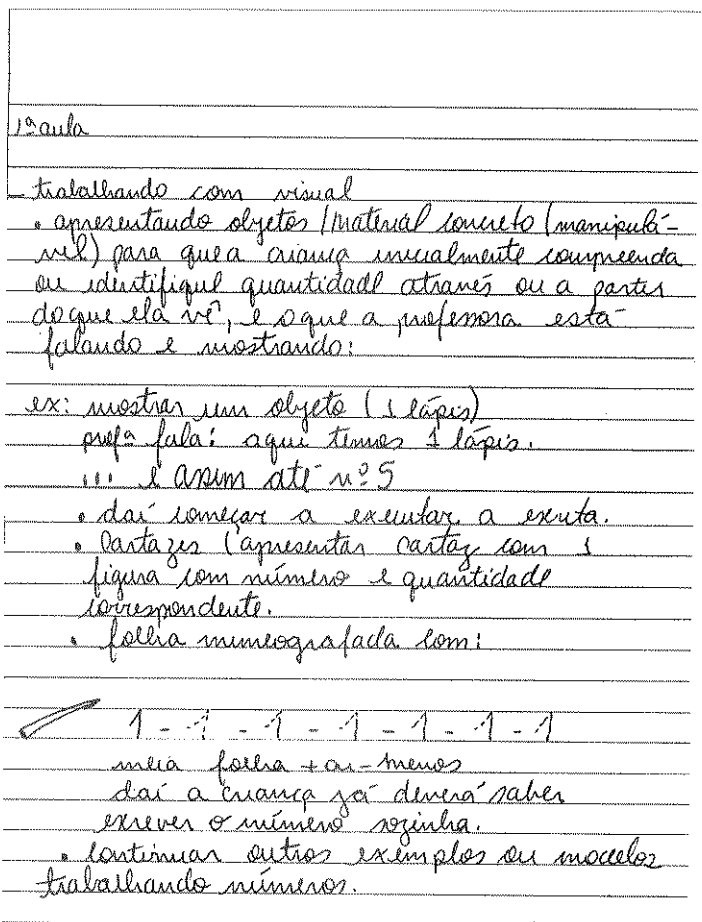 1ª aula
- trabalhando com visual
• apresentando objetos / material concreto (manipulá-
vel) para que a criança inicialmente compreenda
ou identifique quantidade através ou a partir
do que ela vê, e o que a professora está
falando e mostrando:
ex: mostrar um objeto (1 lápis)
profª fala: aqui temos 1 lápis.
... e assim até nº 5
• daí começar a executar a escrita.
• Cartazes (apresentar cartaz com 1
figura com número e quantidade
correspondente.
• folha mimeografada com:
1 - 1 - 1 - 1 - 1 - 1 - 1
meia folha + ou - menos
daí a criança já deverá saber
escrever o número sozinha.
• continuar outros exemplos ou modelos
trabalhando números.